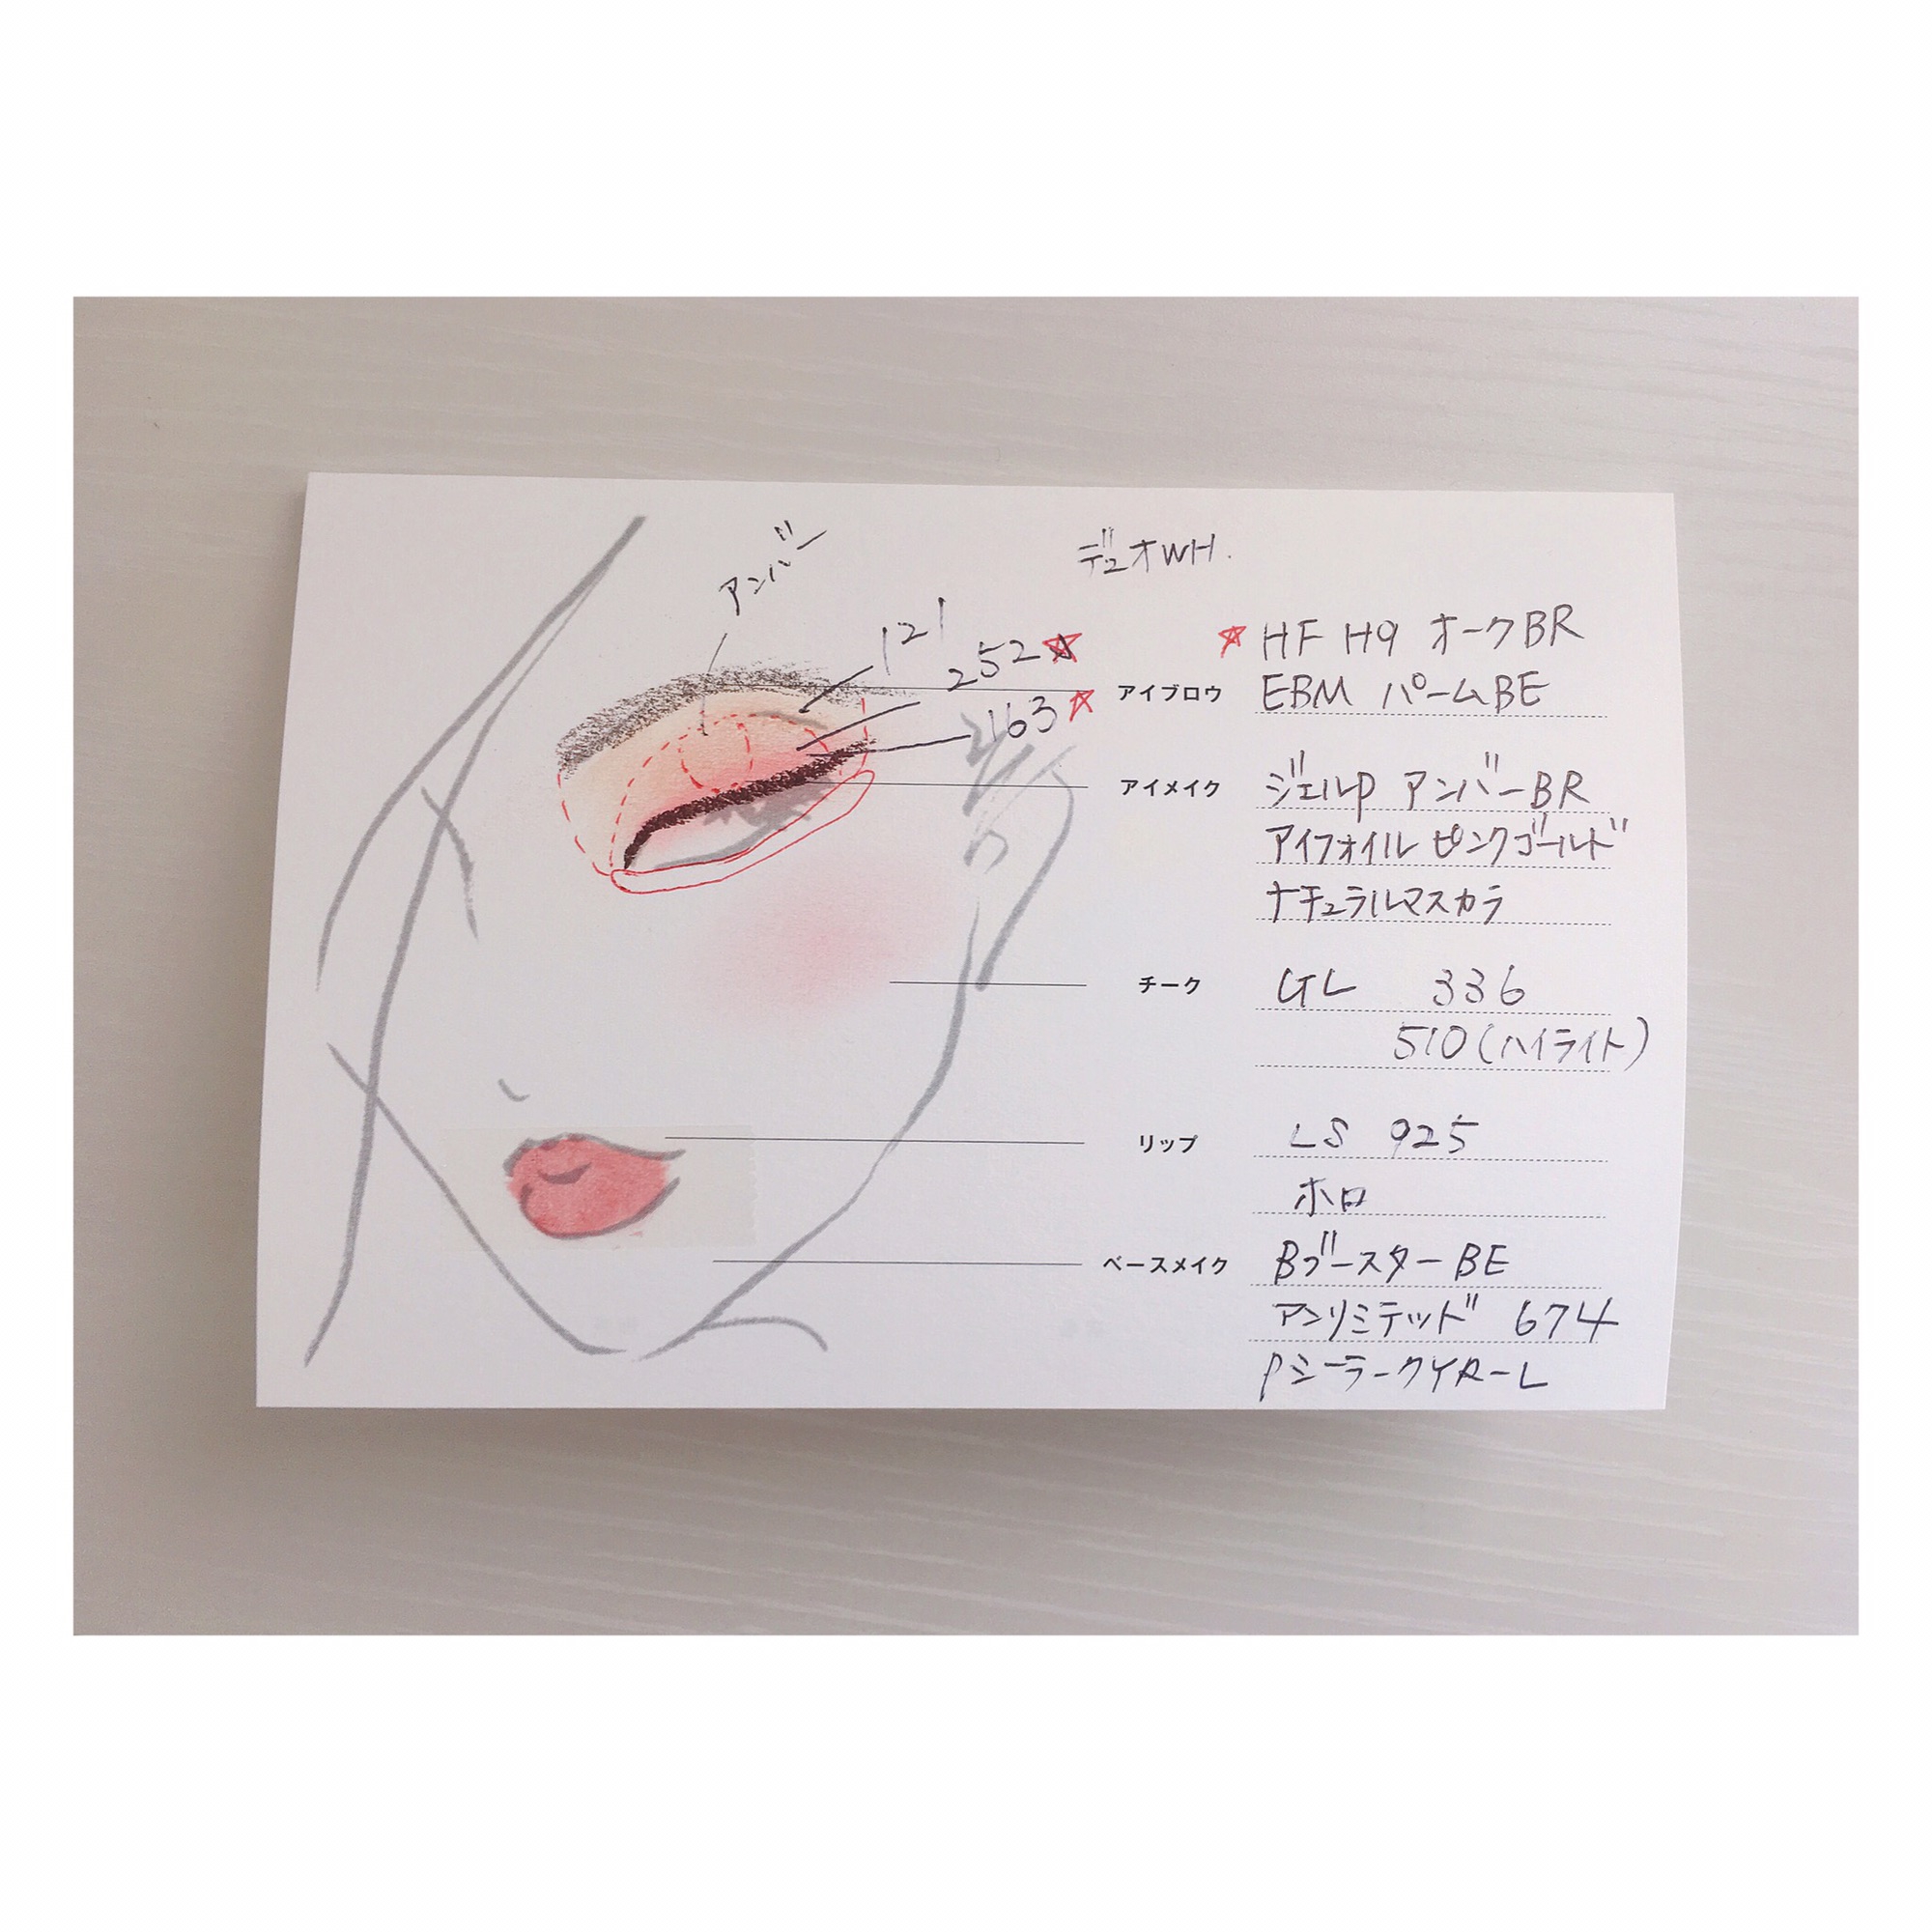 アンバー
デュオWH.
121
252☆
163☆
アイブロウ
☆HF H9 オークBR
EBM パームBE
アイメイク
ジェルP アンバーBR
アイフォイル ピンクゴールド
ナチュラルマスカラ
チーク
GL 336
510(ハイライト)
リップ
LS 925
ホロ
ベースメイク
BブースターBE
アンリミテッド 674